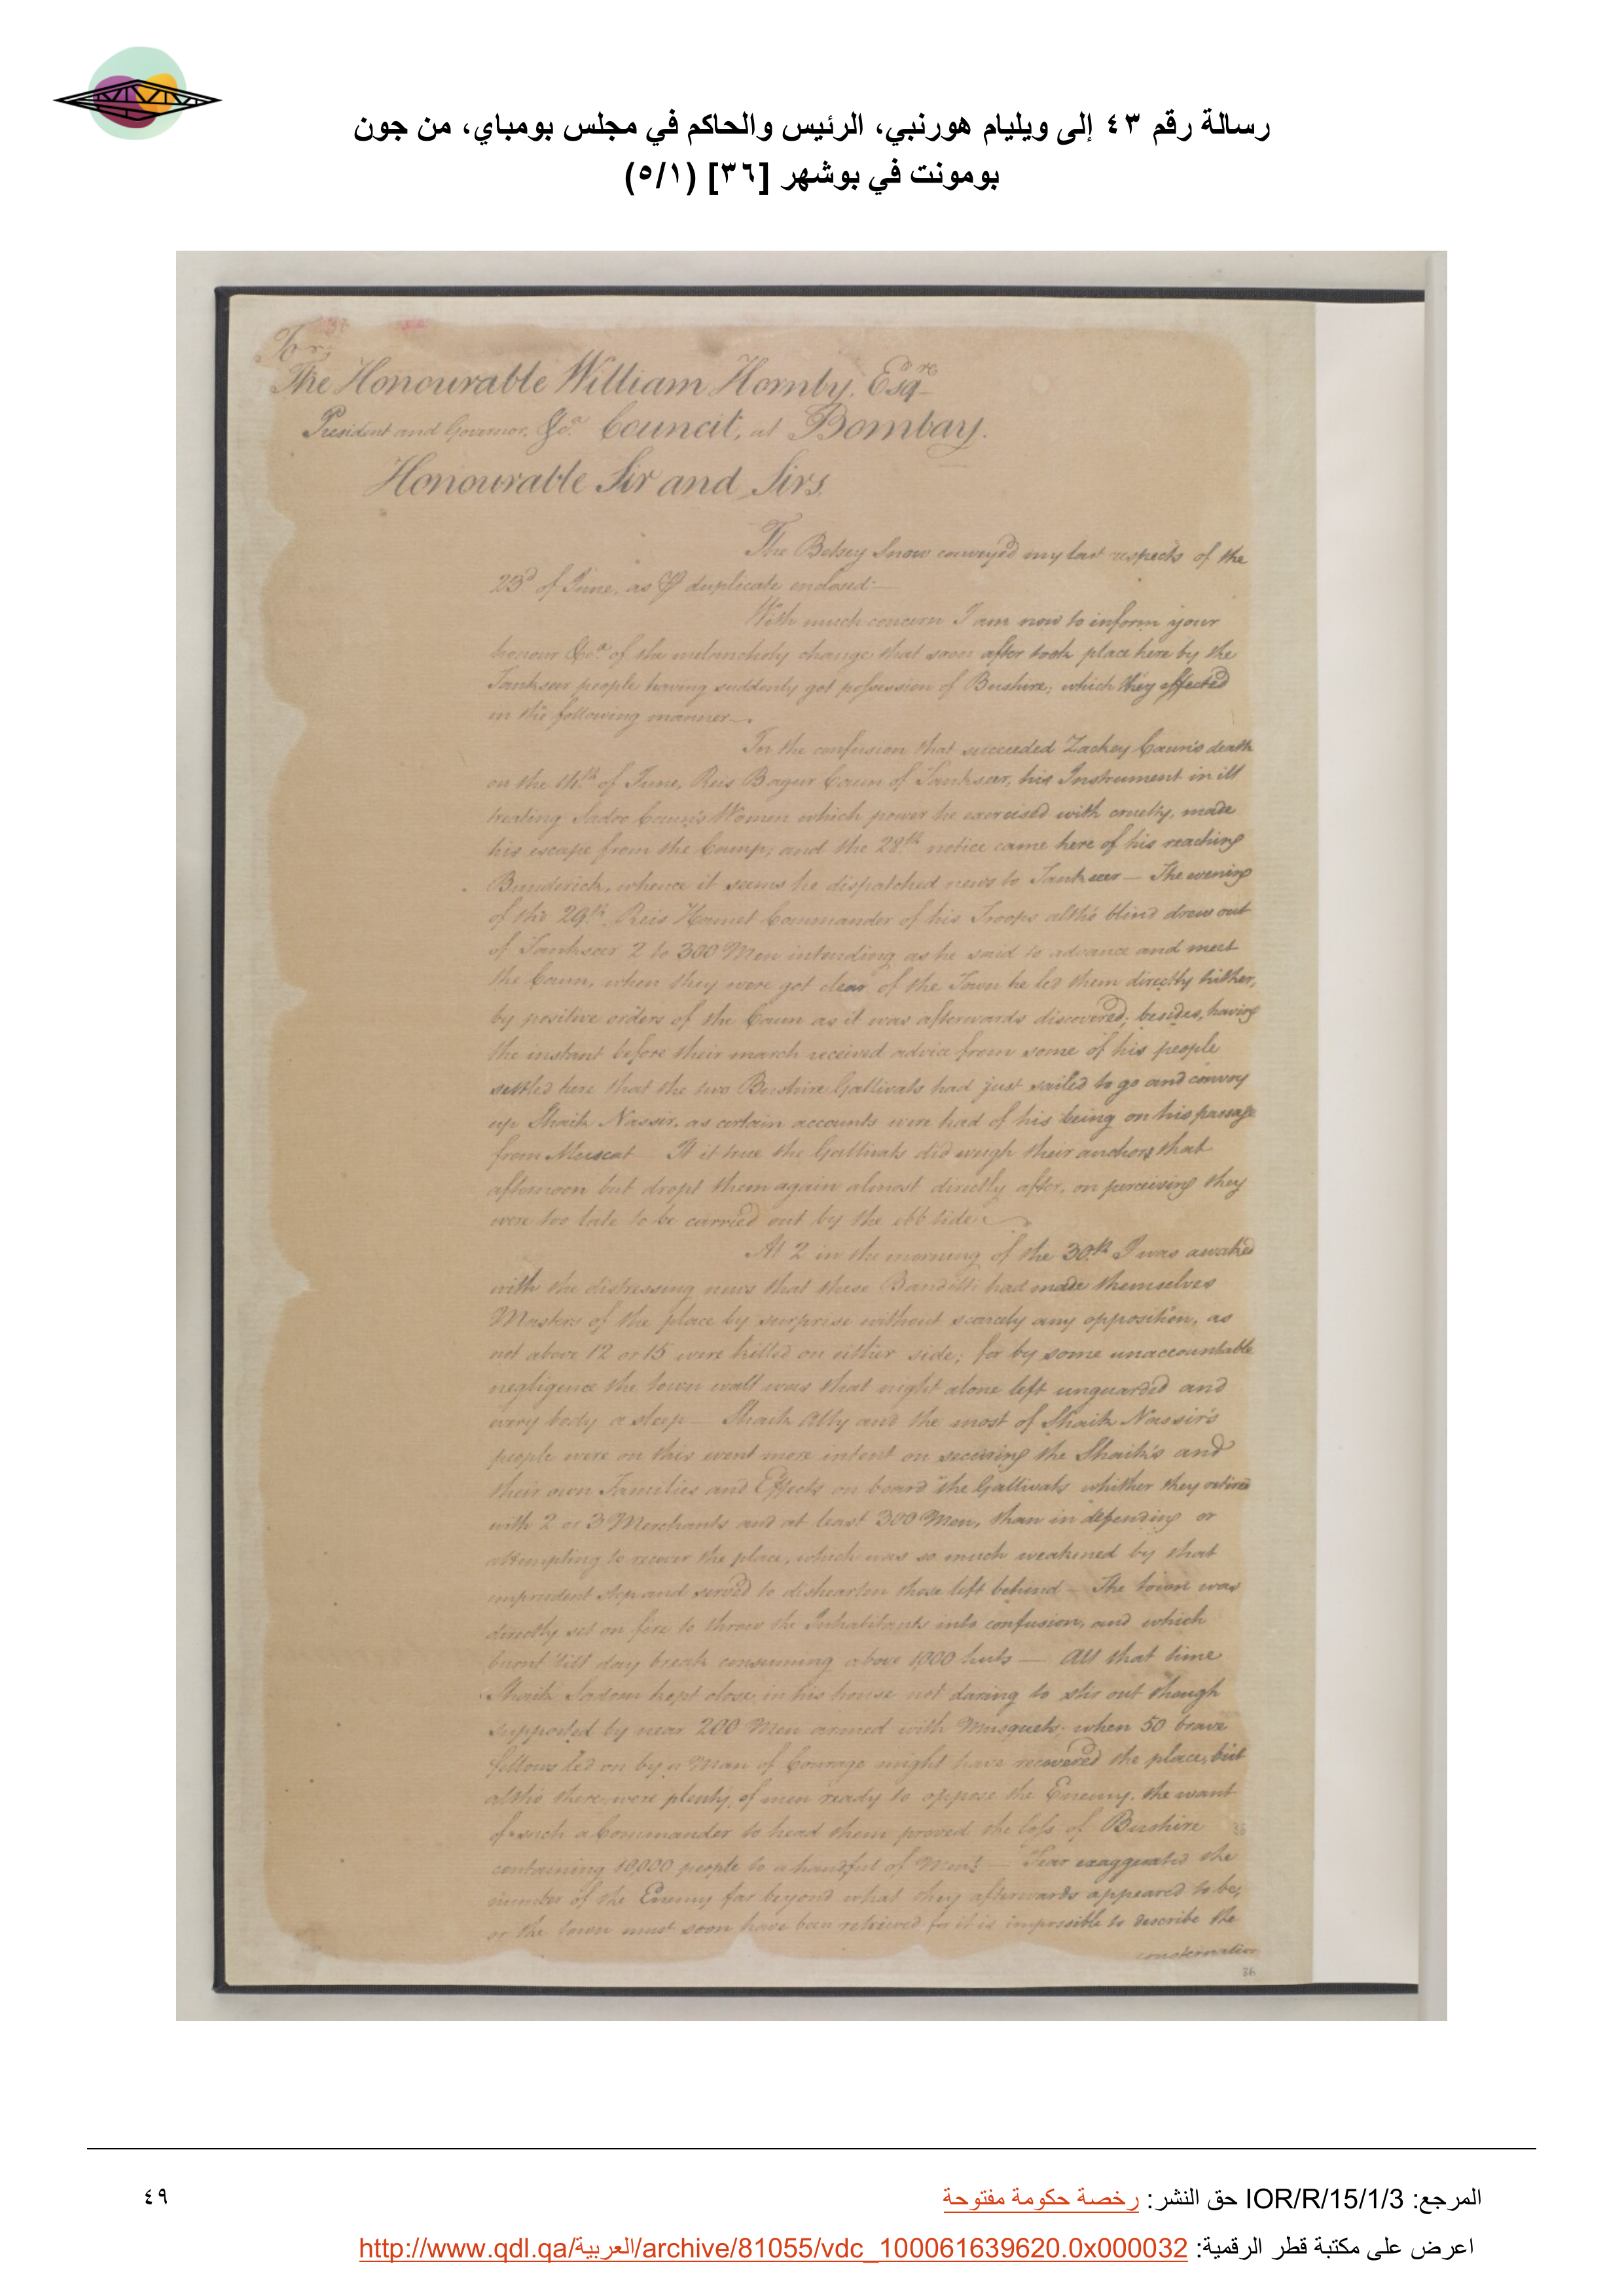 رسالة رقم ٤٣ إلى ويليام هورنبي، الرئيس والحاكم في مجلس بومباي، من جون
بومونت في بوشهر [٣٦] (٥/١)
To,
The Honourable William Hornby, Esqre
President and Governor, &ca. Council, at Bombay.
Honourable Sir and Sirs
The Betsey Snow conveyed my last respects of the
23d of June, as duplicate enclosed:
With much concern I am now to inform your
honour &ca. of the melancholy change that soon after took place here by the
Tankseer people having suddenly got possession of Bushire; which they effected
in the following manner.
In the confusion that succeeded Zackey Caun's death
on the 14th of June, Reis Bagur Caun of Tankseer, his Instrument in ill
treating Sadoc Caun's Women which power he exercised with cruelty, made
his escape from the Camp; and the 28th notice came here of his reaching
Bunderick, whence it seems he dispatched news to Tankseer — The evening
of the 29th, Reis Hamet Commander of his Troops altho' blind drew out
of Tankseer 2 to 300 Men intending as he said to advance and meet
the Caun, when they were got clear of the Town he led them directly hither,
by positive orders of the Caun as it was afterwards discovered; besides, having
the instant before their march received advice from some of his people
settled here that the two Bushire Gallivats had just sailed to go and convoy
up Shaik Nassir, as certain accounts were had of his being on his passage
from Muscat It is true the Gallivats did weigh their anchors that
afternoon but dropt them again almost directly after, on perceiving they
were too late to be carried out by the ebb tide
At 2 in the morning of the 30th I was awaked
with the distressing news that these Banditti had made themselves
Masters of the place by surprise without scarcely any opposition, as
not above 12 or 15 were killed on either side; for by some unaccountable
negligence the town wall was that night alone left unguarded and
every body asleep — Shaik Ally and the most of Shaik Nassir's
people were on this event more intent on securing the Shaik's and
their own Families and Effects on board the Gallivats whither they retired
with 2 or 3 Merchants and at least 300 Men, than in defending or
attempting to recover the place, which was so much weakened by that
imprudent step and served to dishearten those left behind — The town was
directly set on fire to throw the Inhabitants into confusion, and which
burnt 'till day break consuming above 1000 huts — All that time
Shaik Sadoon kept close in his house not daring to stir out though
supported by near 200 Men armed with Musquets; when 50 brave
fellows led on by a Man of Courage might have recovered the place, but
altho' there were plenty of men ready to oppose the Enemy, the want
of such a Commander to head them proved the loss of Bushire
containing 10,000 people to a handful of Men! — Fear exaggerated the
number of the Enemy far beyond what they afterwards appeared to be,
or the town must soon have been retrieved for it is impossible to describe the
consternation
36
المرجع: IOR/R/15/1/3 حق النشر: رخصة حكومة مفتوحة
٤٩
اعرض على مكتبة قطر الرقمية: http://www.qdl.qa/العربية/archive/81055/vdc_100061639620.0x000032